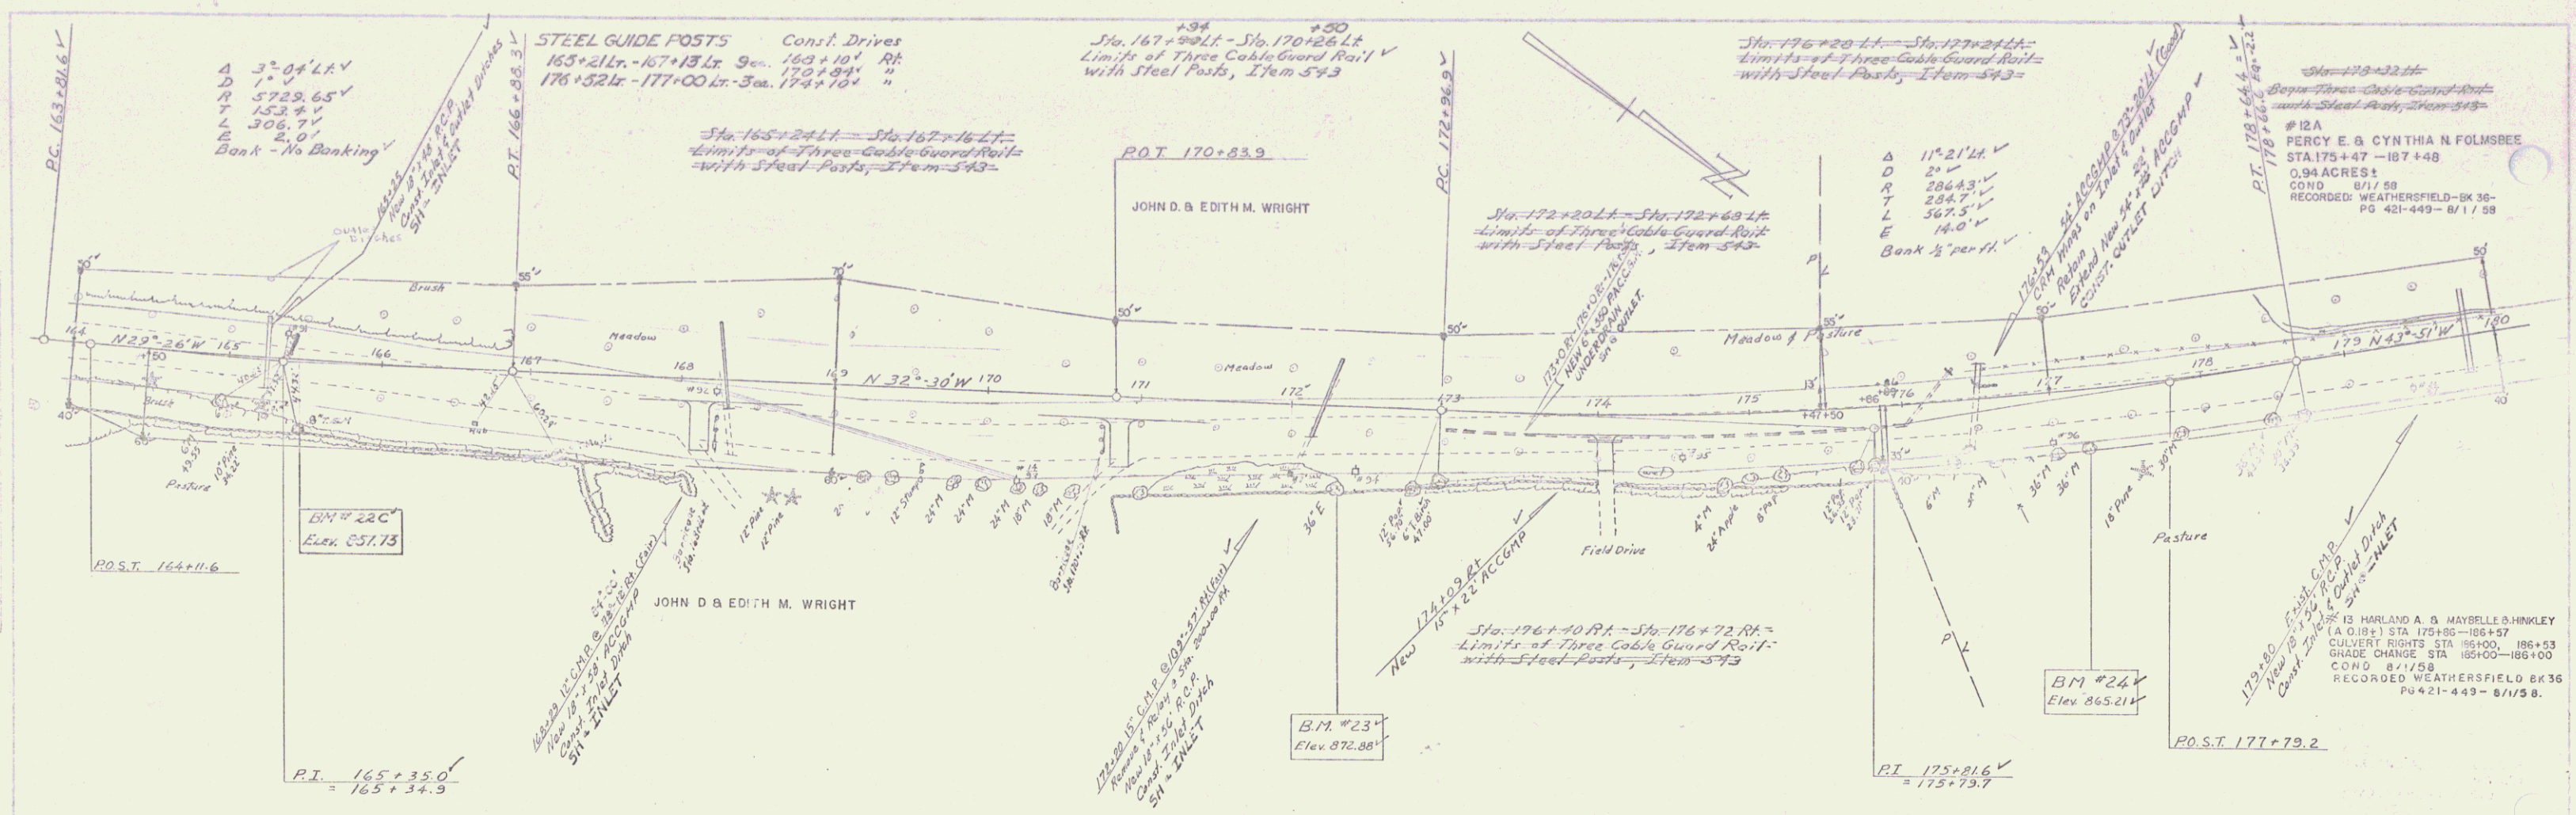 P.C. 163+81.6
Δ 3°-04' Lt.
D 1°
R 5729.65
T 153.4
L 306.7
E 2.0'
Bank - No Banking
165+25
New 18" x 48' R.C.P.
Const. Inlet & Outlet Ditches
SH = INLET
Outlet
Ditches
P.T. 166+88.3
STEEL GUIDE POSTS
165+21 Lt. - 167+13 Lt. 9 ea.
176+52 Lt. - 177+00 Lt. - 3 ea.
Const. Drives
168+10 Rt.
170+84 "
174+10 "
Sta. 165+24 Lt. - Sta. 167+16 Lt.
Limits of Three Cable Guard Rail
with Steel Posts, Item 543
+94 +50
Sta. 167+ Lt. - Sta. 170+26 Lt.
Limits of Three Cable Guard Rail
with Steel Posts, Item 543
P.O.T. 170+83.9
JOHN D. & EDITH M. WRIGHT
P.C. 172+96.9
N
Sta. 172+20 Lt. - Sta. 172+68 Lt.
Limits of Three Cable Guard Rail
with Steel Posts, Item 543
UNDERDRAIN
OUTLET.
Sta. 176+28 Lt. - Sta. 177+24 Lt.
Limits of Three Cable Guard Rail
with Steel Posts, Item 543
Δ 11°-21' Lt.
D 2°
R 2864.3'
T 284.7'
L 567.5'
E 14.0'
Bank ½" per ft.
176+53 54" ACCGMP @ 73°-20' Lt (Good)
CRM Wings on Inlet & Outlet
Retain
Extend New 54" x 22' ACCGMP
CONST. OUTLET DITCH
P.T. 178+64.4 =
178+66.6 EQ=2.2'
Sta. 178+32 Lt.
Begin Three Cable Guard Rail
with Steel Posts, Item 543
#12A
PERCY E. & CYNTHIA N. FOLMSBEE
STA. 175+47 - 187+48
0.94 ACRES±
COND 8/1/58
RECORDED: WEATHERSFIELD-BK 36-
PG 421-449- 8/1/58
50' 55' 70' 50' 50' 55' 50' 50'
Brush
Meadow
Meadow
Meadow & Pasture
P
L
164 N29°-26'W 165 166 167 168 169 N 32°-30'W 170 171 172 173 174 175 176 177 178 179 N43°-51'W 180
+50
#91
#92
13'
+47+50
+86
40'
60'
Brush
Hub
60'
#94
#95
35'
#96
40'
Pasture
10" Pine
12" Pine
12" Pine
12" Stump
24" M
24" M
24" M
18" M
18" M
36" E
12" Pop.
47.00'
4" M
24" Apple
8" Pop.
6" M
36" M
36" M
18" Pine
30" M
Pasture
Field Drive
BM # 22C
Elev. 851.73
P.O.S.T. 164+11.6
P.I. 165+35.0
= 165+34.9
168+29 12" C.M.P. @ Rt (Fair)
New 18" x 58' ACCGMP
Const. Inlet Ditch
SH = INLET
JOHN D & EDITH M. WRIGHT
Barricade
Barricade
172+20 15" C.M.P. @ 109°-57' Rt (Fair)
Remove & Relay @ Sta. 200+00 Rt.
New 18" x 56' R.C.P.
Const. Inlet Ditch
SH = INLET
B.M. #23
Elev. 872.88
New 174+09 Rt
15" x 22' ACCGMP
Sta. 176+40 Rt. - Sta. 176+72 Rt.
Limits of Three Cable Guard Rail
with Steel Posts, Item 543
P
L
P.I 175+81.6
= 175+79.7
BM #24
Elev. 865.21
P.O.S.T. 177+79.2
179+80 Exist. C.M.P.
New 18" x 56' R.C.P.
Const. Inlet & Outlet Ditch
SH = INLET
# 13 HARLAND A. & MAYBELLE B. HINKLEY
(A 0.18±) STA 175+86-186+57
CULVERT RIGHTS STA 186+00, 186+53
GRADE CHANGE STA 185+00-186+00
COND 8/1/58
RECORDED WEATHERSFIELD BK 36
PG 421-449- 8/1/58.